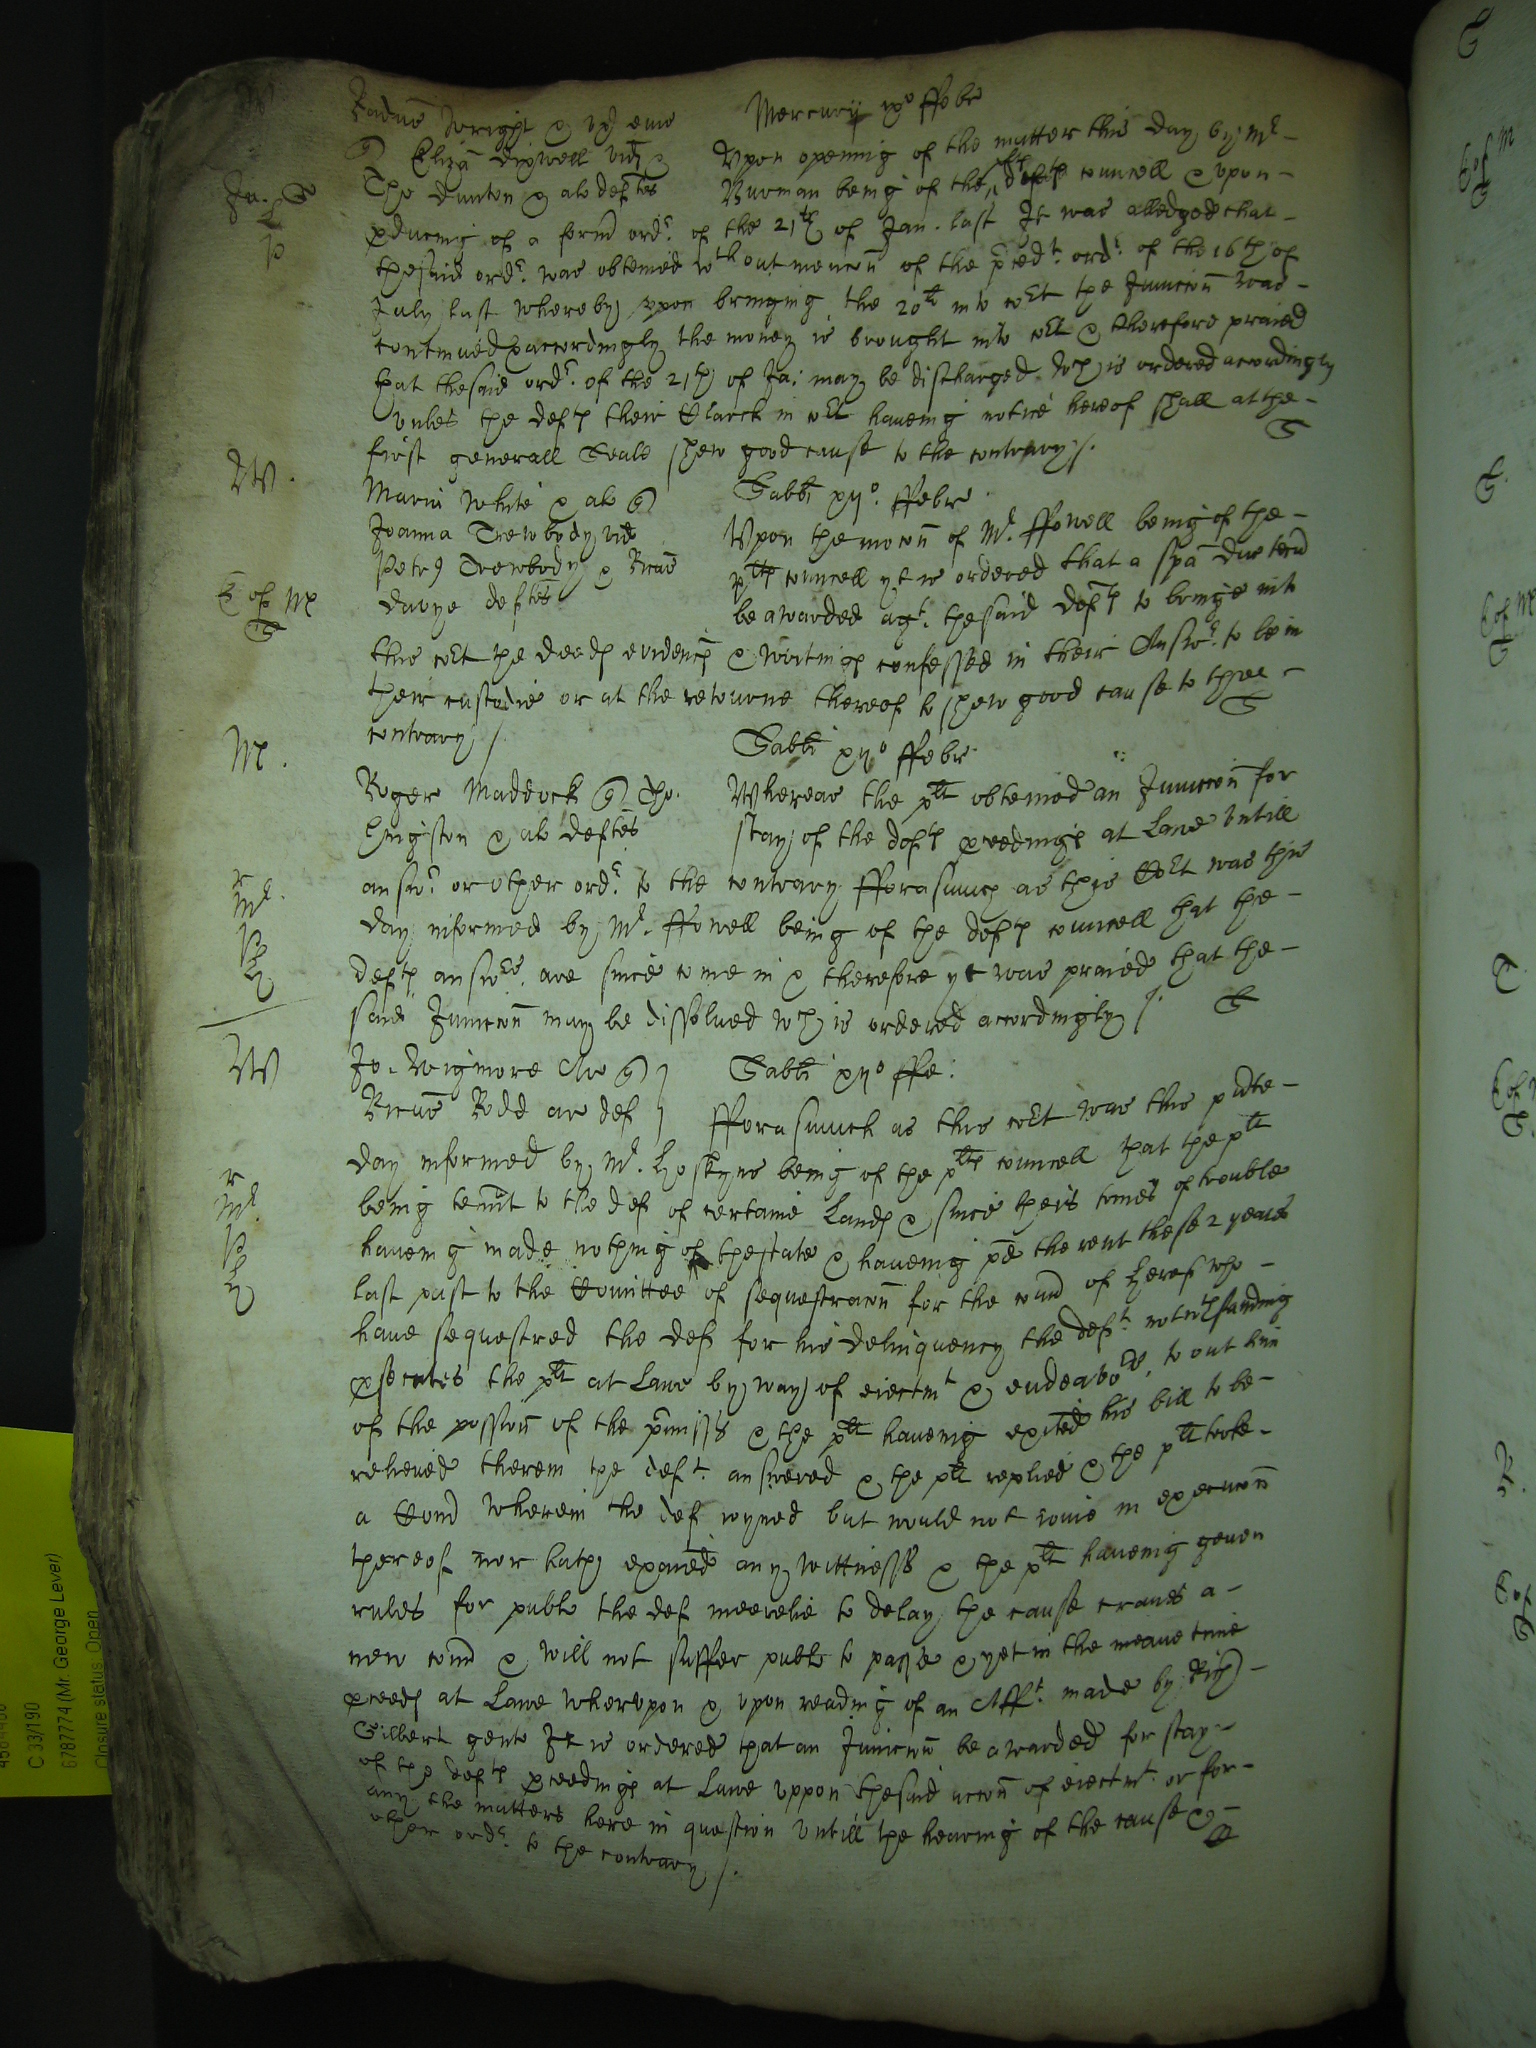 W
Radus Wright & ux eius Mercurij ixo ffebr
Eliza Dixwell vid & Upon openinge of the matter this day by Mr
Tho Dunton & als deftes Burman being of the councell & upon
Ja. S
producing of a formr ordr. of the 21th of Jan. last It was alledged that
the said ordr. was obteined wthout mencon of the ordr. of the 16th of
July last whereby upon bringing the 20li into cort the Iniunccon was
continued & accordingly the money is brought into cort & therefore praied
that the said ordr. of the 21th of Ja: may be discharged wch is ordered accordingly
unles the defts their Clarck in cort haveing notice hereof shall at the
first generall Seale shew good cause to the contrary /. S
W. Maria White & als Sabbti xijo. ffebr
Joanna Trewbody vid Upon the mocon of Mr. ffowell being of the
Petrus Trewbody & Ricus plts councell yt is ordered that a spa duc tecu
Davye deftes be awarded agt. the said defts to bringe into
S
this cort the deeds evidences & writings confessed in their Answr. to be in
their custodie or at the retourne thereof to shew good cause to the
contrary /. S
M. Sabbti xijo ffebr
Roger Maddock Tho. Whereas the plt obteined an Iniunccon for
Kingston & als deftes stay of the defts proceedings at Lawe untill
answr. or other ordr. to the contrary fforasmuch as this Cort was this
r
Mr.
day informed by Mr. ffowell being of the defts councell that the
defts answers. are since come in & therefore yt was praied that the
said Iniunccon may be dissolved wch is ordered accordingly /. S
W Jo. Wigmore Sabbti xijo ffe:
Ricus Rodd ar def fforasmuch as this cort was this pnte
day informed by Mr. Hoskyns being of the plts councell that the plt
r
Mr
being tennt to the def of certaine Lands & since theis times of trouble
haveing made nothing of the state & haveing pd the rent these 2 years
last past to the Comittee of sequestracon for the county of Heref who
have sequestred the def for his delinquency the deft. notwthstanding
prosecutes the plt at Lawe by way of eiectmt & endeavors. to out him
of the possion of the pmisss & the plt haveing exited his bill to be
relieved therein the deft. answered & the plt replied & the plt tooke
a Comd wherein the def ioyned but would not ioine in execucon
thereof nor hath exaied any wittnesses & the plt haveing geven
rules for publc the def meerelie to delay the cause craves a
new comd & will not suffer publc to passe & yet in the meane time
proceeds at Lawe whereupon & upon reading of an Afft. made by Rich
Gilbert gent It is ordered that an Iniunccon be awarded for stay
of the defts proceedings at Lawe uppon the said accon of eiectmt. or for
any the matters here in question untill the hearing of the cause &
other ordr. to the contrary /.
C 33/190
6787774 (Mr. George Lever)
Closure status: Open